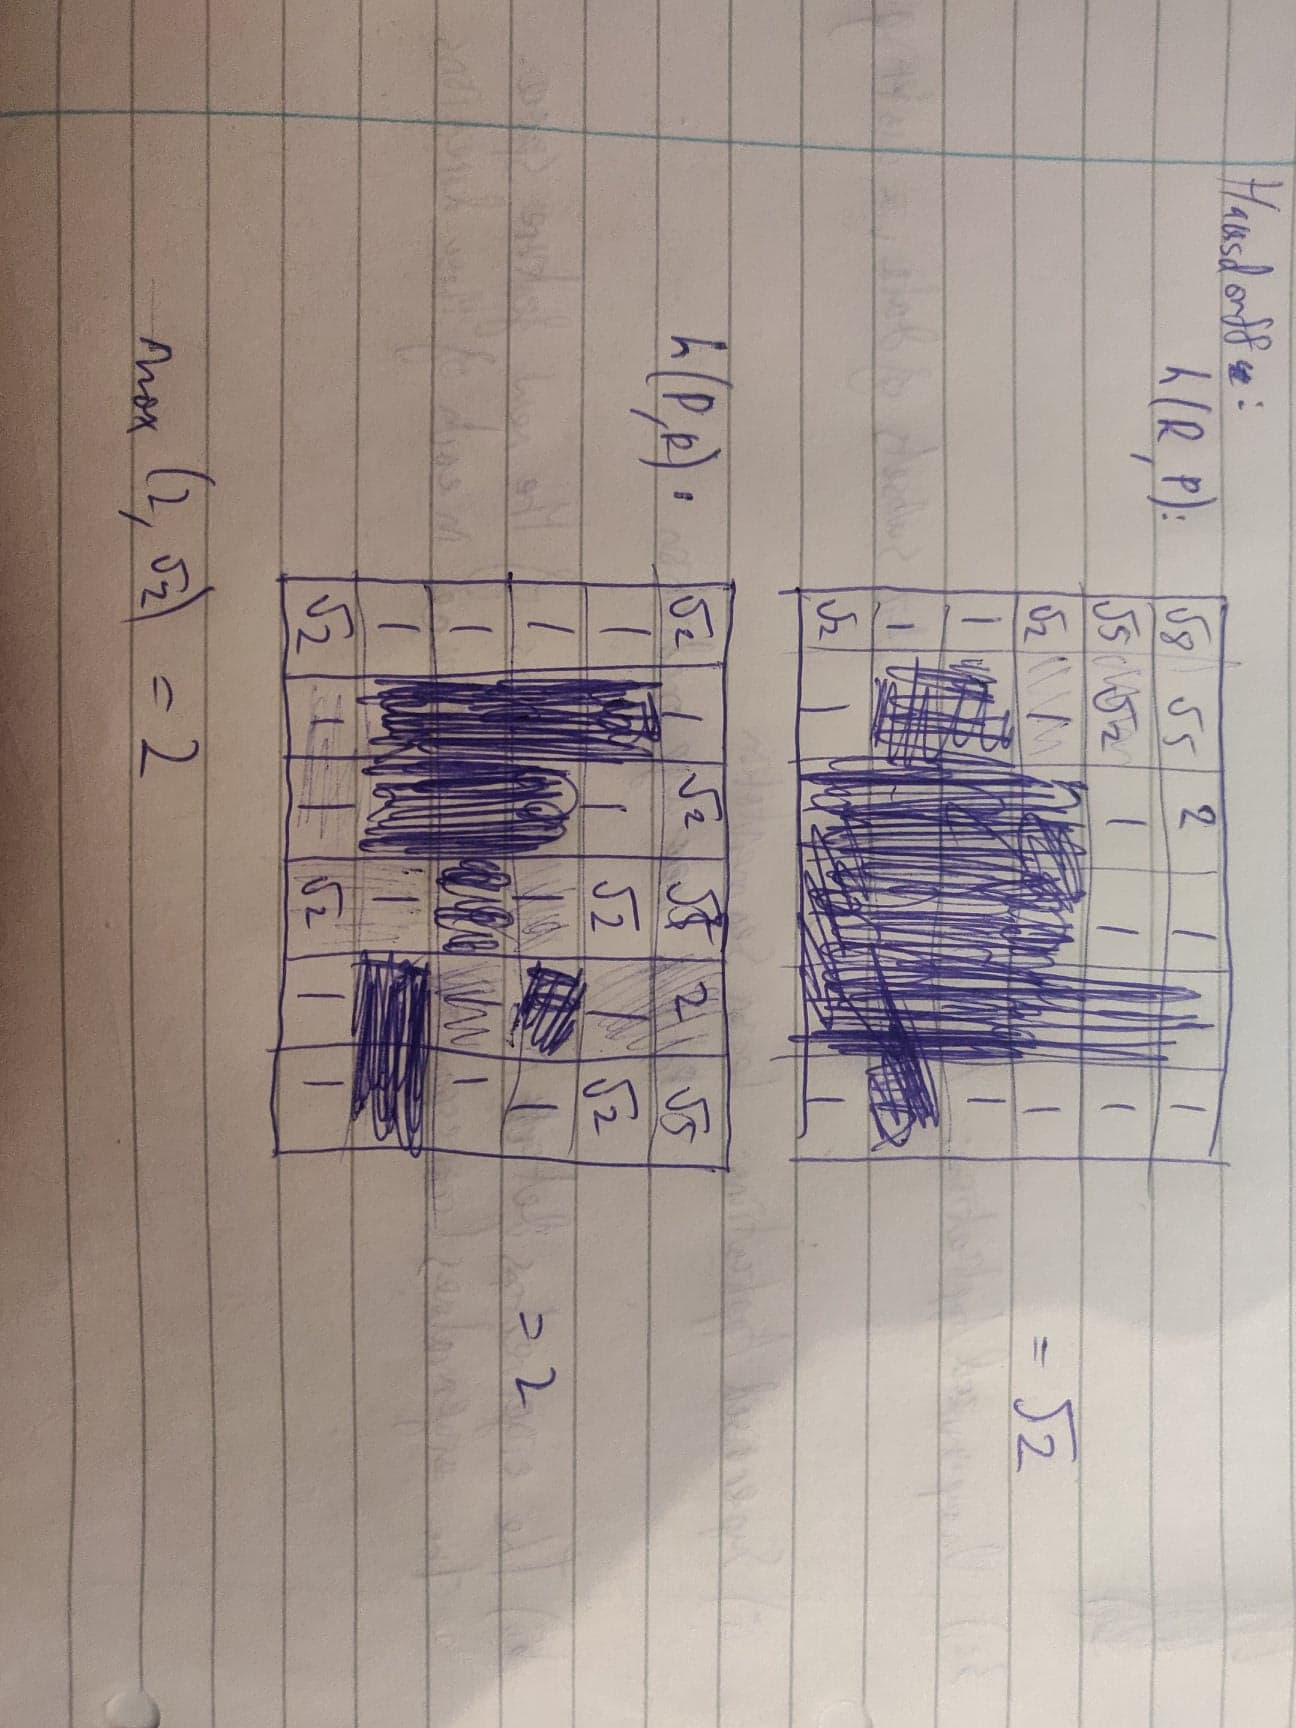 Hausdorff:
h(R, P):
√8 √5 2 1 1
√5 √2 1 1 1
√2 1 = √2
1 1
1
√2 1 1
h(P, R):
√2 1 √2 2 √5
1 1 √2 1 √2
1 1 1 = 2
1 1
1 1
√2 1 1 √2 1 1
max (2, √2) = 2